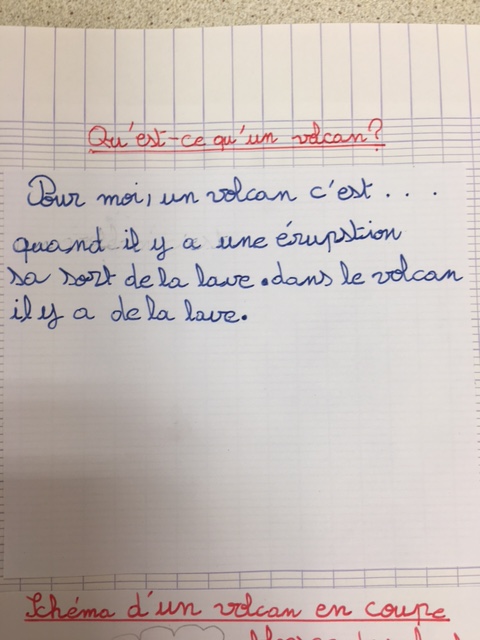 Qu'est-ce qu'un volcan?
Pour moi, un volcan c'est . . .
quand il y a une érupstion
sa sort de la lave. dans le volcan
il y a de la lave.
Schéma d'un volcan en coupe